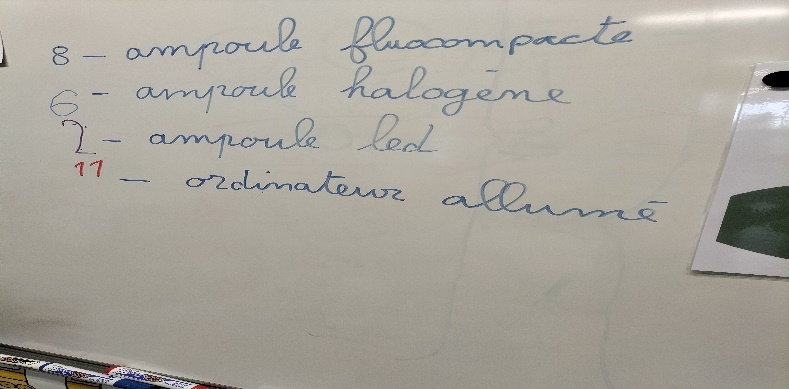 8 - ampoule fluocompacte
6 - ampoule halogène
2 - ampoule led
11 - ordinateur allumé